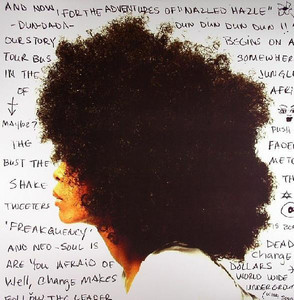 AND NOW! FOR THE ADVENTURES OF "NAZLED HAZLE"
-DUN-DADA- DUN DUN DUN DUN!!
OUR STORY BEGINS ON A
TOUR BUS SOMEWHERE
IN THE JUNGLE
OF AFRI
MAYBE?
THE PUSH
BUST THE FADE
SHAKE METE
TWEETERS
"FREAKQUENCY"
AND NEO-SOUL IS DEAD
ARE YOU AFRAID OF Change
Well, Change MAKES DOLLARS
FOLLOW THE LEADER WORLD WIDE
UNDERGROUN